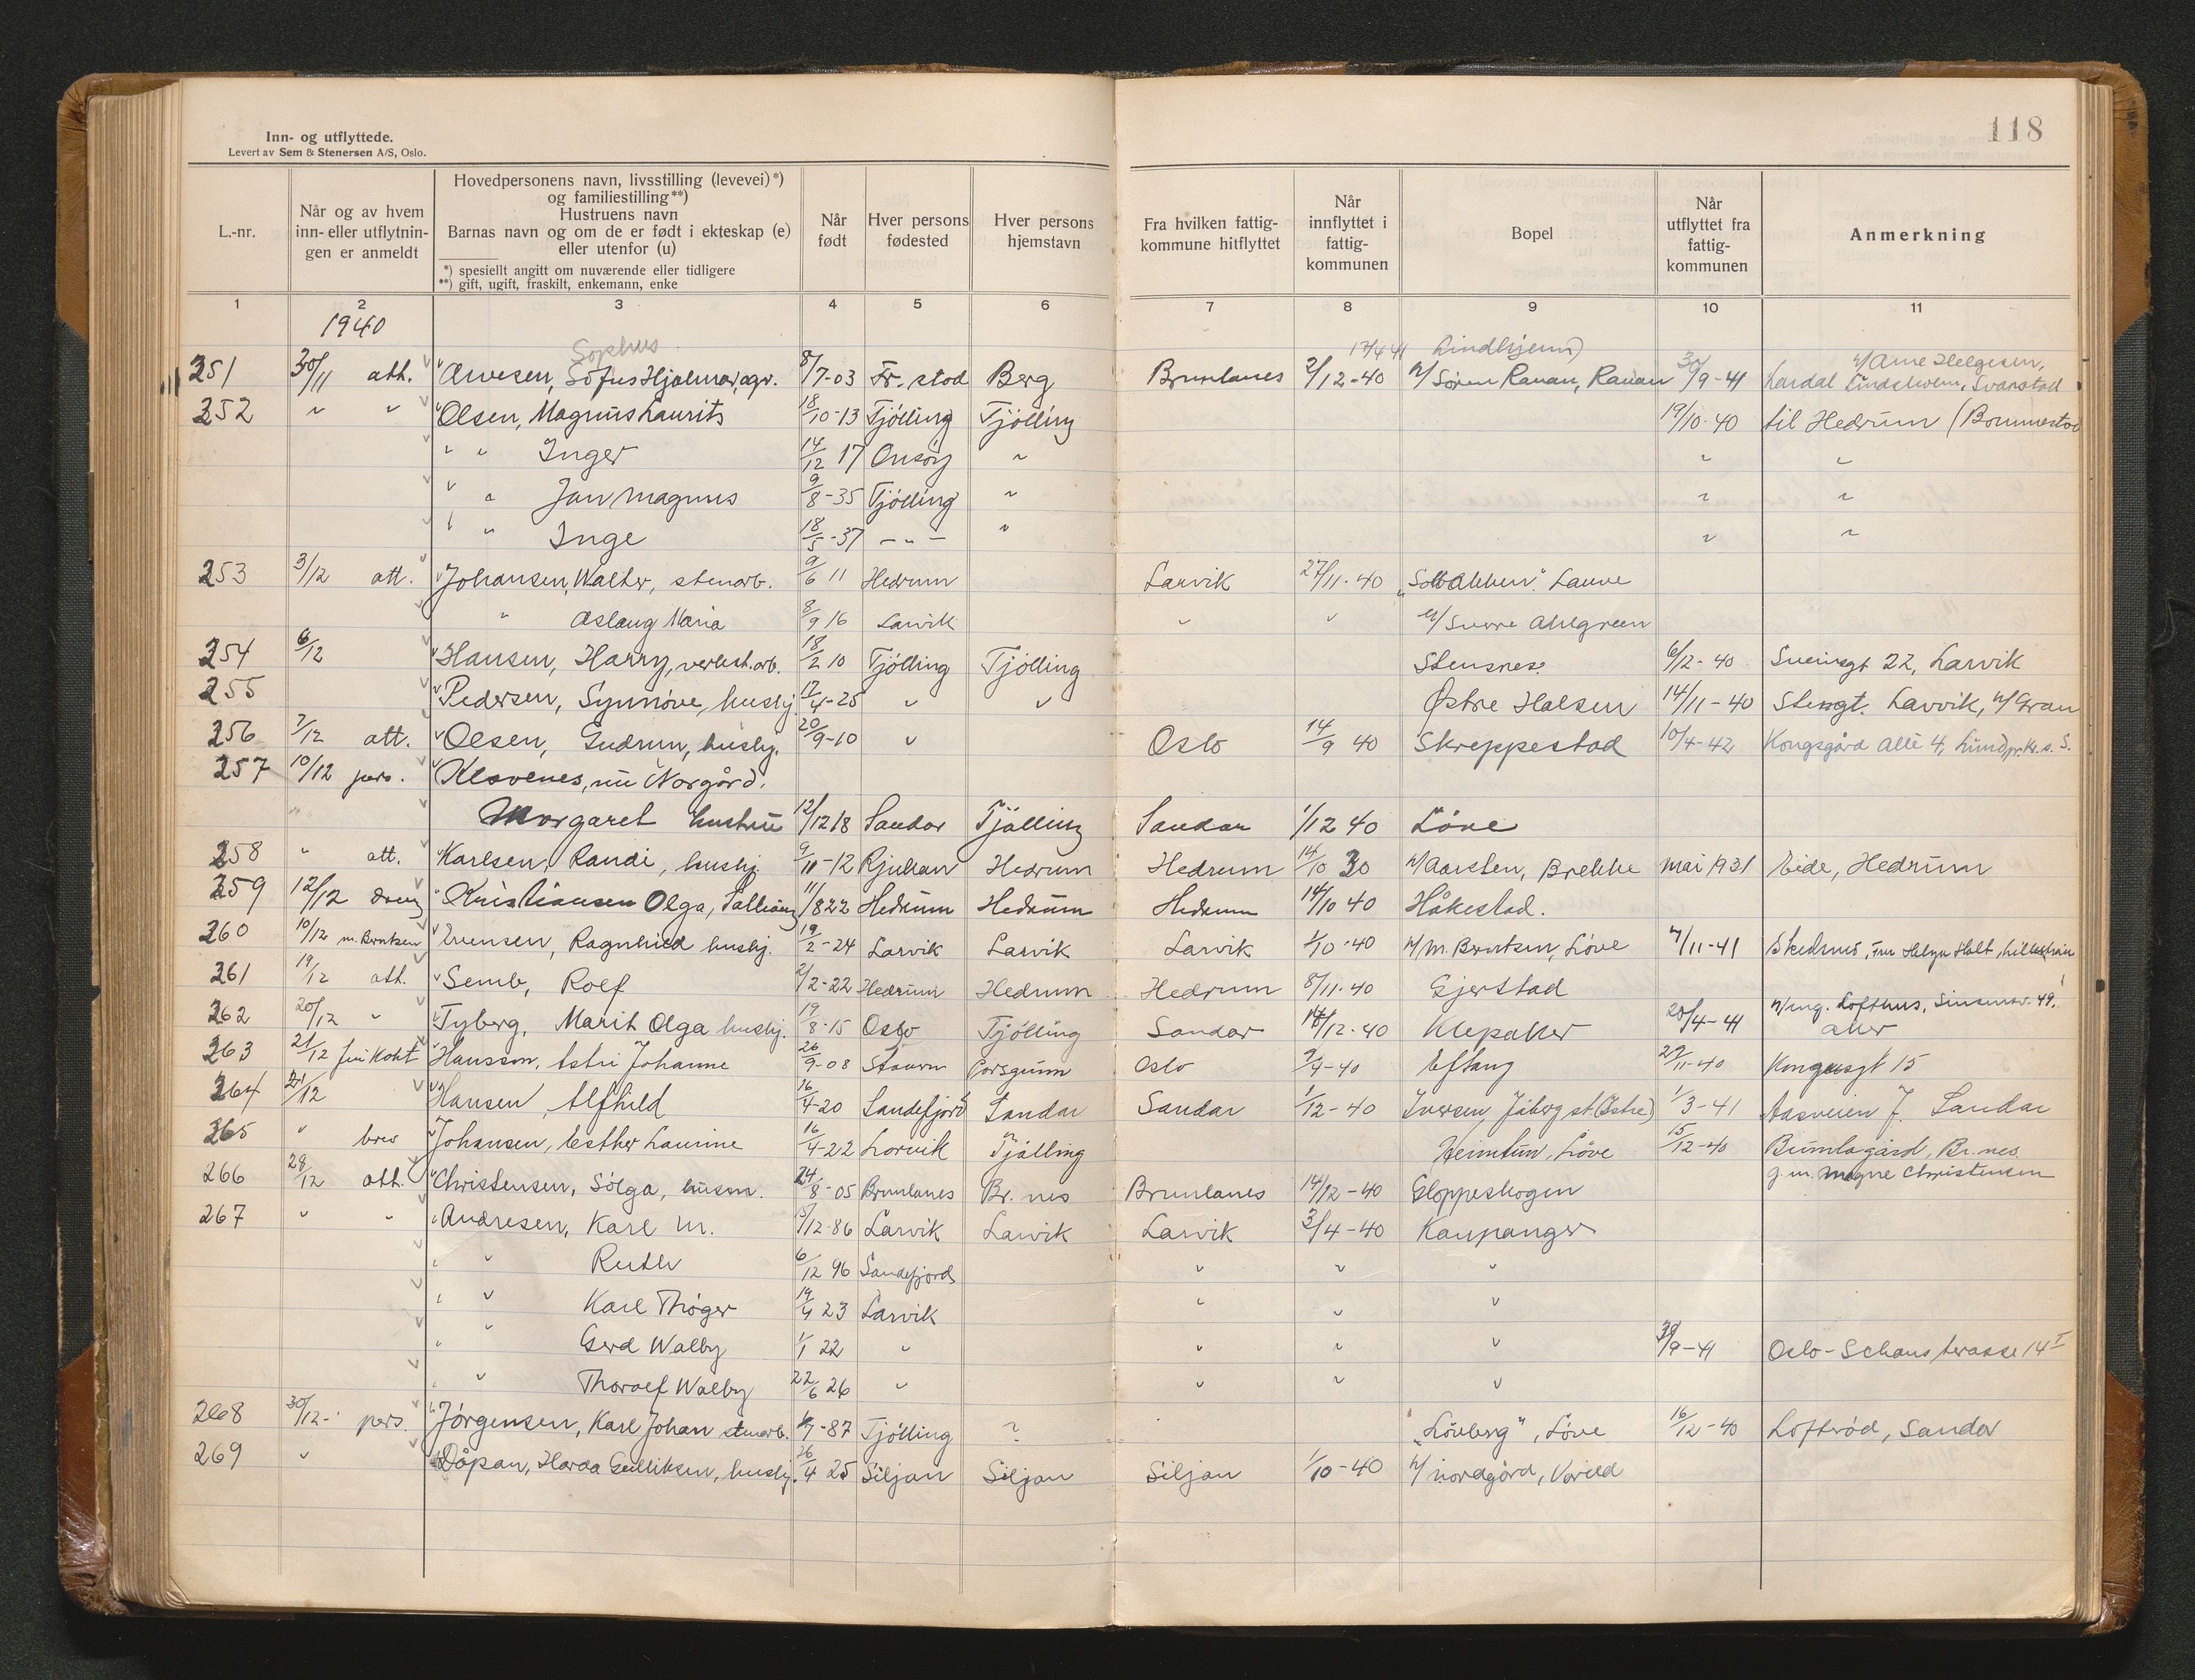 118
Inn- og utflyttede.
Levert av Sem & Stenersen A/S, Oslo.
L.-nr.
Når og av hvem inn- eller utflytnin-gen er anmeldt
Hovedpersonens navn, livsstilling (levevei)*) og familiestilling**)
Hustruens navn
Barnas navn og om de er født i ekteskap (e) eller utenfor (u)
*) spesiellt angitt om nuværende eller tidligere
**) gift, ugift, fraskilt, enkemann, enke
Når født
Hver persons fødested
Hver persons hjemstavn
Fra hvilken fattig-kommune hitflyttet
Når innflyttet i fattig-kommunen
Bopel
Når utflyttet fra fattig-kommunen
Anmerkning
1 2 3 4 5 6 7 8 9 10 11
1940
Sophus 17/4 41 Lindhjem)
251 30/11 att. Arvesen, Sofus Hjalmar, agr. 8/7-03 Fr.stad Berg Brunlanes 2/12-40 h/ Søren Rauan, Rauan 30/9-41 h/Arne Helgesen, Lardal Lindsholm, Svarstad
252 " " Olsen, Magnus Laurits 18/10-13 Tjölling Tjölling 19/10-40 til Hedrum (Bommestad
" " Inger 14/12 17 Onsöy " " "
" " Jan Magnus 9/8-35 Tjölling " " "
" " Inge 18/5-37 -"- " " "
253 3/12 att. Johansen, Walter, stenarb. 9/6 11 Hedrum Larvik 27/11-40 "Solbakken" Lauve
" Aslaug Maria 8/9 16 Larvik " " h/ Sverre Ahlgreen
254 6/12 Hansen, Harry, verkst.arb. 18/2 10 Tjölling Tjölling Stensnes. 6/12-40 Sveinsgt 22, Larvik
255 Pedersen, Synnöve, hushj. 17/4-25 " " Østre Halsen 14/11-40 Stengt. Larvik, h/ Gran
256 7/12 att. Olsen, Gudrun, hushj. 20/9-10 " Oslo 14/9 40 Skreppestad 10/4-42 Kongsgård Alle 4, Lund pr. Kr.s. S.
257 10/12 pers. Klavenes, nu Norgård.
Margaret hustru 12/12 18 Sandar Tjölling Sandar 1/12 40 Löve
258 " att. Karlsen, Randi, hushj. 9/11-12 Rjukan Hedrum Hedrum 14/10 30 h/Aarsten, Brekke mai 1931 Eide, Hedrum
259 12/12 Kristiansen Olga, 11/8 22 Hedrum Hedrum Hedrum 14/10 40 Håkestad.
260 10/12 m. Berntsen Evensen, Ragnhild hushj. 19/2-24 Larvik Larvik Larvik 1/10-40 h/ M. Berntsen, Löve 7/11-41 Skedsmo, Fru Helga Holt,
261 19/12 att. Semb, Rolf 2/2-22 Hedrum Hedrum Hedrum 8/11-40 Gjerstad
262 20/12 " Tyberg, Marit Olga hushj. 19/8-15 Oslo Tjölling Sandar /12-40 Klepaker 20/4-41 h/ing. Lofthus, Sinsenv. 49. Aker
263 21/12 fru Koht Hansson, Astri Johanne 26/9-08 Stavern Porsgunn Oslo 9/4-40 Eftang 29/11-40 Kongensgt 15
264 21/12 Hansen, Alfhild 16/4-20 Sandefjord Sandar Sandar 1/12-40 Iversen, Jåberg st (Istre) 1/3-41 Aasveien 7. Sandar
265 " brev Johansen, Esther Laurine 16/4-22 Larvik Tjölling Heimtun, Löve 15/12-40 Brunlagård, Br.nes. g.m. Magne Christensen
266 28/12 att. Christensen, Sölga, husm. 24/8-05 Brunlanes Br.nes Brunlanes 14/12-40 Gloppeskogen
267 " " Andresen, Karl M. 15/12-86 Larvik Larvik Larvik 3/4-40 Kaupanger
" " Ruth 6/12 96 Sandefjord " " "
" " Karl Thöger 19/4 23 Larvik " " "
" " Gerd Walby 1/1 22 " " " " 30/9-41 Oslo - Schaus terasse 14 I
" " Thoralf Walby 22/6 26 " " " "
268 30/12- pers. Jörgensen, Karl Johan stenarb. /7-87 Tjölling ? "Lövberg", Löve 16/12-40 Loftröd, Sandar
269 " Dåpan, Harda Gulliksen, hushj. 26/4 25 Siljan Siljan Siljan 1/10-40 h/ Nordgård, Varild